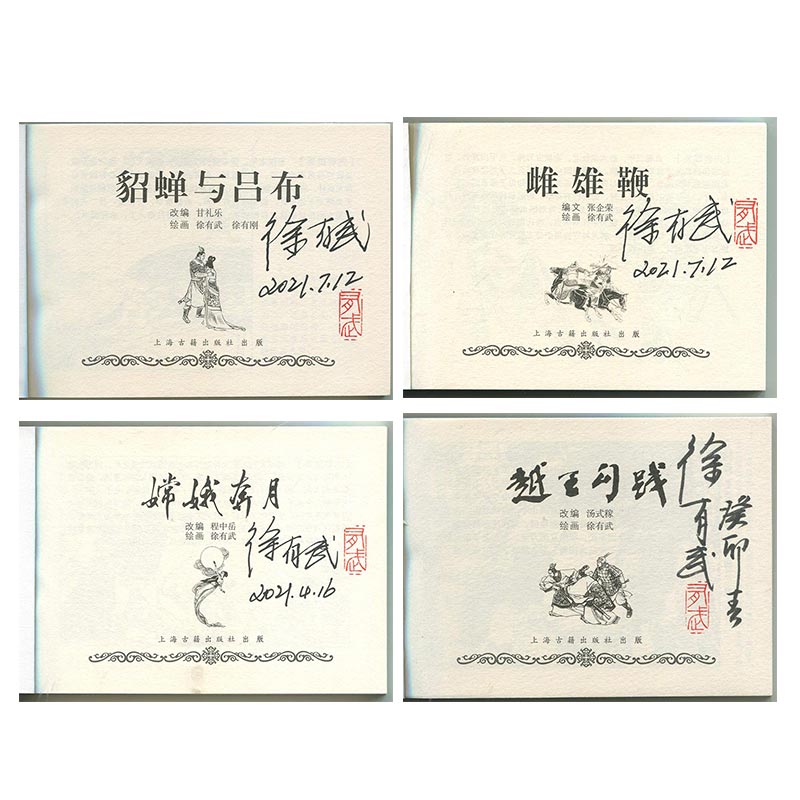 貂蝉与吕布
改编 甘礼乐
绘画 徐有武 徐有刚
徐有武
2021.7.12
有武
上海古籍出版社出版
雌雄鞭
编文 张企荣
绘画 徐有武
徐有武
2021.7.12
有武
上海古籍出版社出版
嫦娥奔月
改编 程中岳
绘画 徐有武
徐有武
2021.4.16
有武
上海古籍出版社出版
越王勾践
改编 汤式稼
绘画 徐有武
徐有武
癸卯春
有武
上海古籍出版社出版